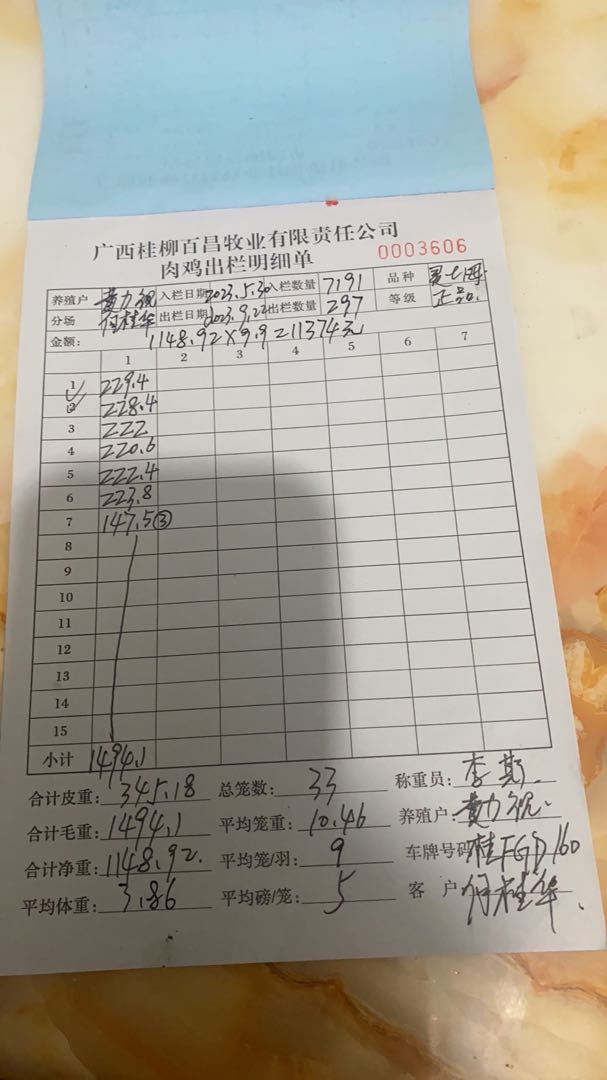 广西桂柳百昌牧业有限责任公司
肉鸡出栏明细单 0003606
养殖户 黄力视 入栏日期 2023.5.30 入栏数量 7191 品种
分场 何桂华 出栏日期 2023.9.22 出栏数量 297 等级 正品.
金额: 1148.92×9.9=11374元
1 2 3 4 5 6 7
1 229.4
2 228.4
3 222
4 220.6
5 222.4
6 223.8
7 147.5③
8
9
10
11
12
13
14
15
小计 1494.1
合计皮重: 345.18 总笼数: 33 称重员: 李斯
合计毛重: 1494.1 平均笼重: 10.46 养殖户: 黄力视
合计净重: 1148.92. 平均笼/羽: 9 车牌号码 桂FGD160
平均体重: 3.86 平均磅/笼: 5 客户 何桂华.